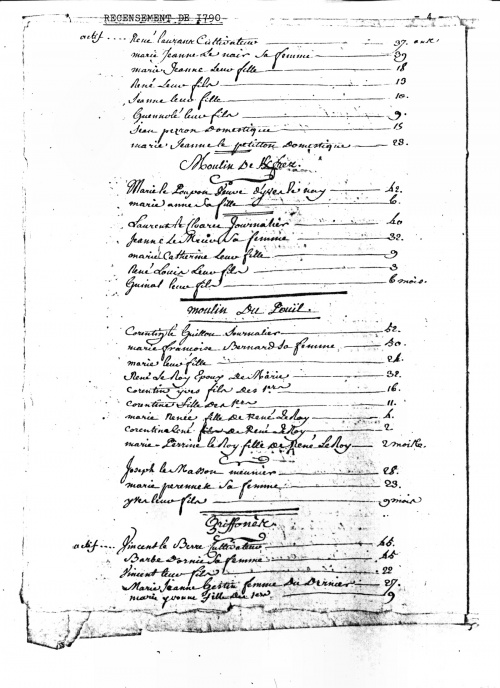 RECENSEMENT DE 1790 4
actif .... René Cultivateur 37. ans
marie Jeanne Le noir Sa femme 39
marie Jeanne Leur fille 18
René Leur fils 13
Jeanne leur fille 10.
Guennolé leur fils 9.
Jean perron Domestique 15
marie Jeanne le petitton Domestique 23.
Moulin De
Marie le Poupon Veuve d'yves le nay 42.
marie anne Sa fille 6.
Laurent Journalier 40
Jeanne Sa femme 32.
marie Catherine Leur fille 9
René Louis Leur fils 3
Guinal leur fils 6 mois.
moulin Du Pouil.
Corentin le Guillou Journalier 52.
marie francoise Bernard Sa femme 50.
marie leur fille 24.
René Le Roy Epoux De Marie 32.
Corentin yves fils des 1er 16.
Corentine fille des 1er 11.
marie Renée fille de René Le Roy 4.
Corentin René fils de René Le Roy 2
marie-Perrine le Roy fille de René Le Roy 2 mois
Joseph le Masson meunier 28.
marie perennek Sa femme 23.
yves leur fils 9 mois
Griffonek
actif .... Vincent le Berre Cultivateur 45.
Barbe Sa femme 45
Vincent leur fils 22
Marie Jeanne femme Du Dernier 27.
marie yvonne fille du 1er 9